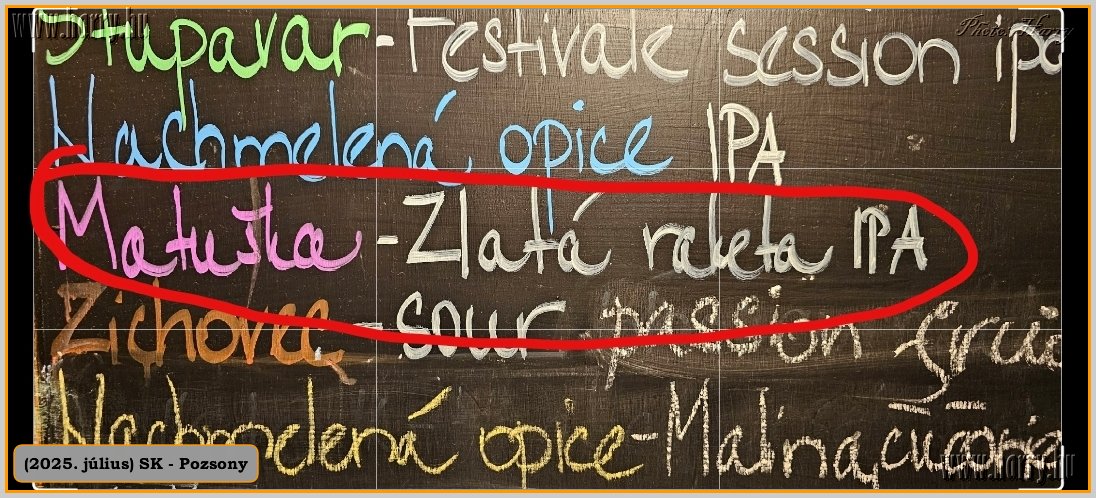 www.harry.hu
Photo: Harry
Stupavar - Festivale session ipa
Nachmelená opice IPA
Matuška - Zlatá raketa IPA
Zichovec - sour passion fruit
Nachmelená opice - Malina,
(2025. július) SK - Pozsony
www.harry.hu